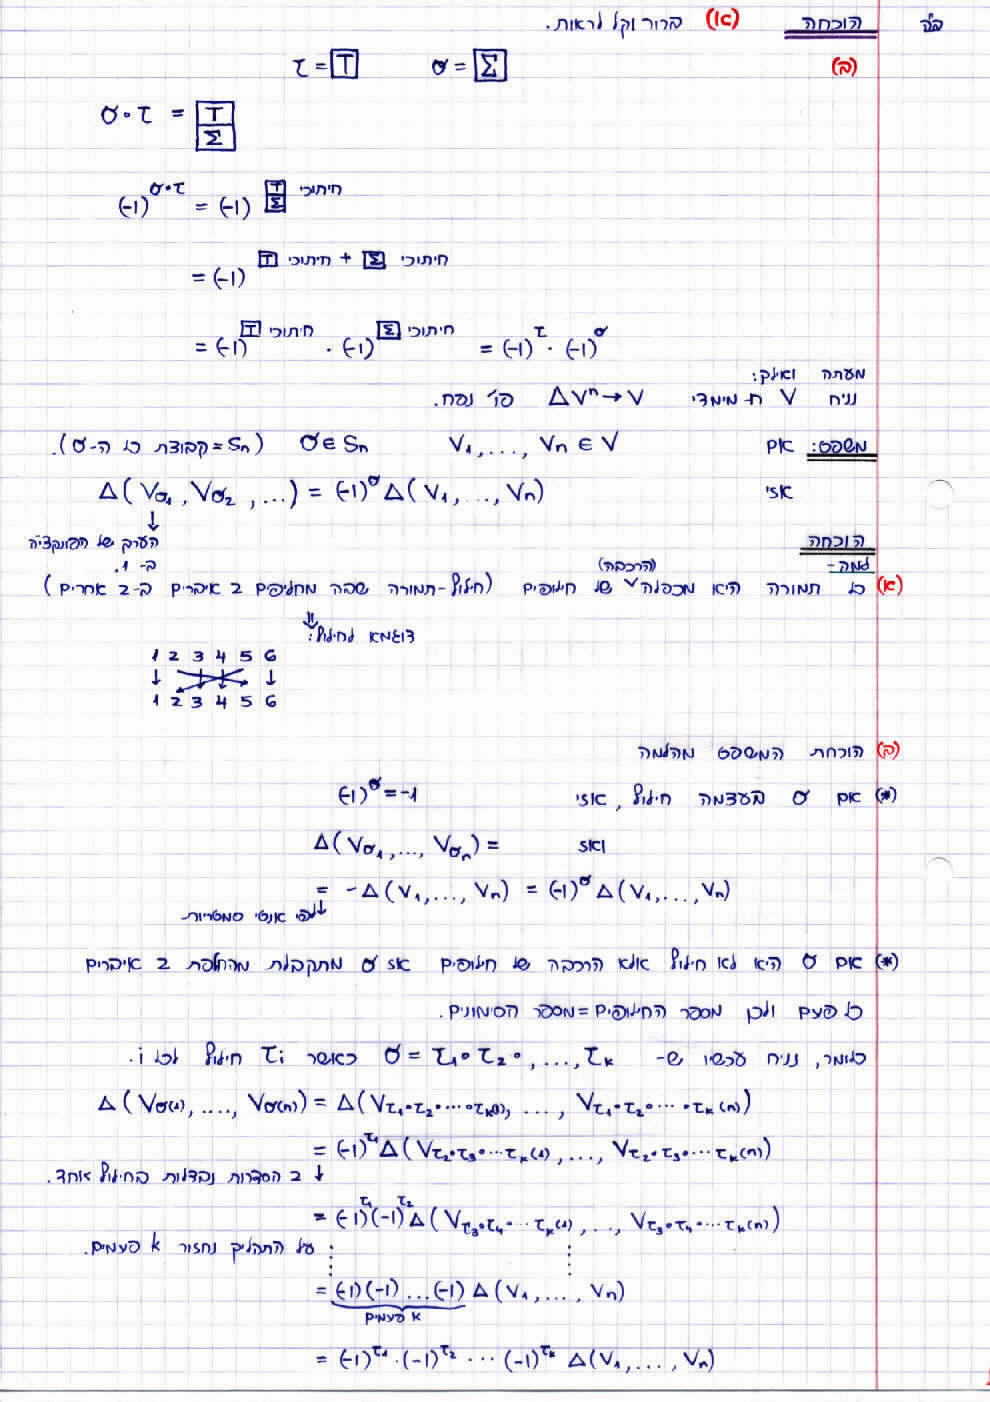 בה הוכחה (א) ברור וקל לראות.
(ב) τ = [T] σ = [Σ]
σ∘τ = [T] [Σ]
(-1)^σ∘τ = (-1)^[T][Σ] חיתוכי
= (-1)^[T] חיתוכי + [Σ] חיתוכי
= (-1)^[T] חיתוכי · (-1)^[Σ] חיתוכי = (-1)^τ · (-1)^σ
מעתה ואילך:
נניח V n-מימדי Δ Vⁿ→V פו' נפח.
משפט: אם V₁,..., Vn ∈ V σ ∈ Sn (Sn = קבוצת כל ה-σ).
אזי Δ(Vσ₁, Vσ₂, ...) = (-1)^σ Δ(V₁, ..., Vn)
↓
הערך של הפונקציה
ב- 1.
הוכחה
למה-
(א) כל תמורה היא מכפלה (הרכבה) של חילופים (חילוף-תמורה שבה מחליפים 2 איברים ב-2 אחרים)
⇓ דוגמא לחילוף:
1 2 3 4 5 6
1 2 3 4 5 6
(ב) הוכחת המשפט מהלמה
(*) אם σ בעצמה חילוף, אזי (-1)^σ = -1
ואז Δ(Vσ₁,..., Vσn) =
= -Δ(V₁,..., Vn) = (-1)^σ Δ(V₁,..., Vn)
↓ לפי אנטי סמטריות-
(*) אם σ היא לא חילוף אלא הרכבה של חילופים אז σ מתקבלת מהחלפת 2 איברים
כל פעם ולכן מספר החילופים = מספר הסימונים.
כלומר, נניח עכשיו ש- σ = τ₁∘τ₂∘,...,τk כאשר τi חילוף לכל i.
Δ(Vσ(1), ...., Vσ(n)) = Δ(Vτ₁∘τ₂∘...∘τk(1), ..., Vτ₁∘τ₂∘...∘τk(n))
= (-1)^τ₁ Δ(Vτ₂∘τ₃∘...τk(1), ..., Vτ₂∘τ₃∘...τk(n))
↓ 2 הסדרות נבדלות בחילוף אחד.
= (-1)^τ₁ (-1)^τ₂ Δ(Vτ₃∘τ₄...τk(1), .., Vτ₃∘τ₄...τk(n))
על התהליך נחזור k פעמים.
= (-1)(-1)...(-1) Δ(V₁, ..., Vn)
k פעמים
= (-1)^τ₁ · (-1)^τ₂ ··· (-1)^τk Δ(V₁, ..., Vn)